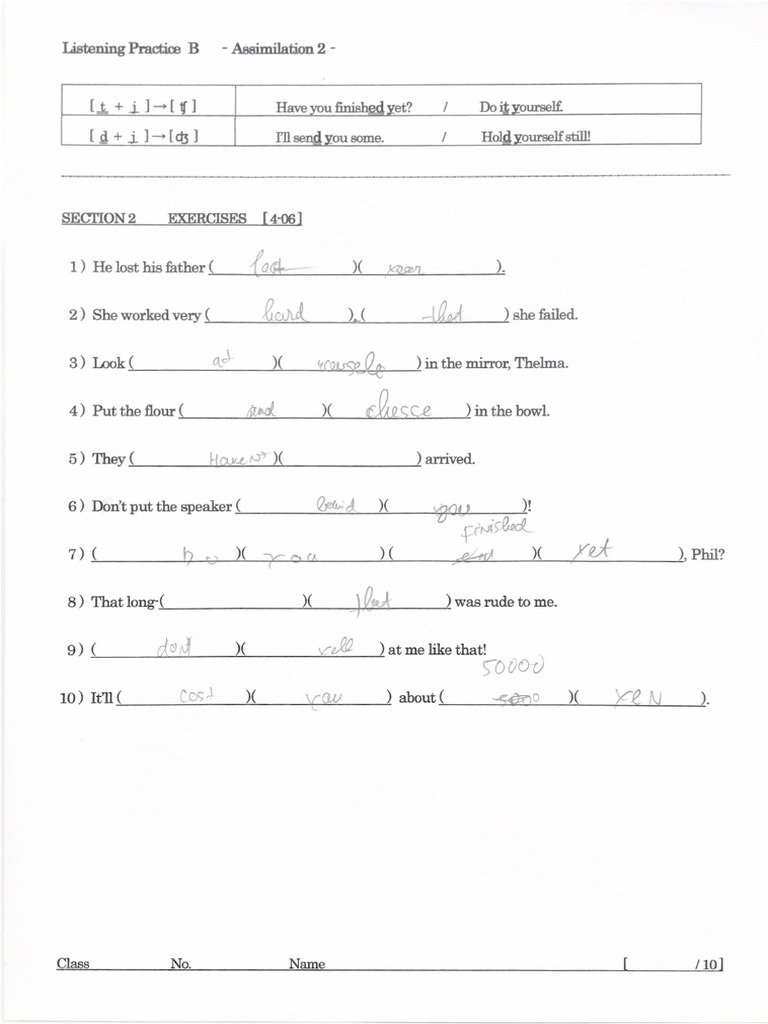 Listening Practice B - Assimilation 2 -
[ t + j ]→[ ʧ ] Have you finished yet? / Do it yourself.
[ d + j ]→[ʤ ] I'll send you some. / Hold yourself still!
SECTION 2 EXERCISES [ 4-06 ]
1 ) He lost his father ( last )( year ).
2 ) She worked very ( hard ), ( thet ) she failed.
3 ) Look ( at )( ) in the mirror, Thelma.
4 ) Put the flour ( and )( chesce ) in the bowl.
5 ) They ( Havent )( ) arrived.
6 ) Don't put the speaker ( behid )( you )!
finished
7 ) ( )( you ) ( )( yet ), Phil?
8 ) That long-( )( thet ) was rude to me.
9 ) ( dont )( yell ) at me like that!
50000
10 ) It'll ( cost )( you ) about ( )( yeN ).
Class No. Name [ / 10 ]